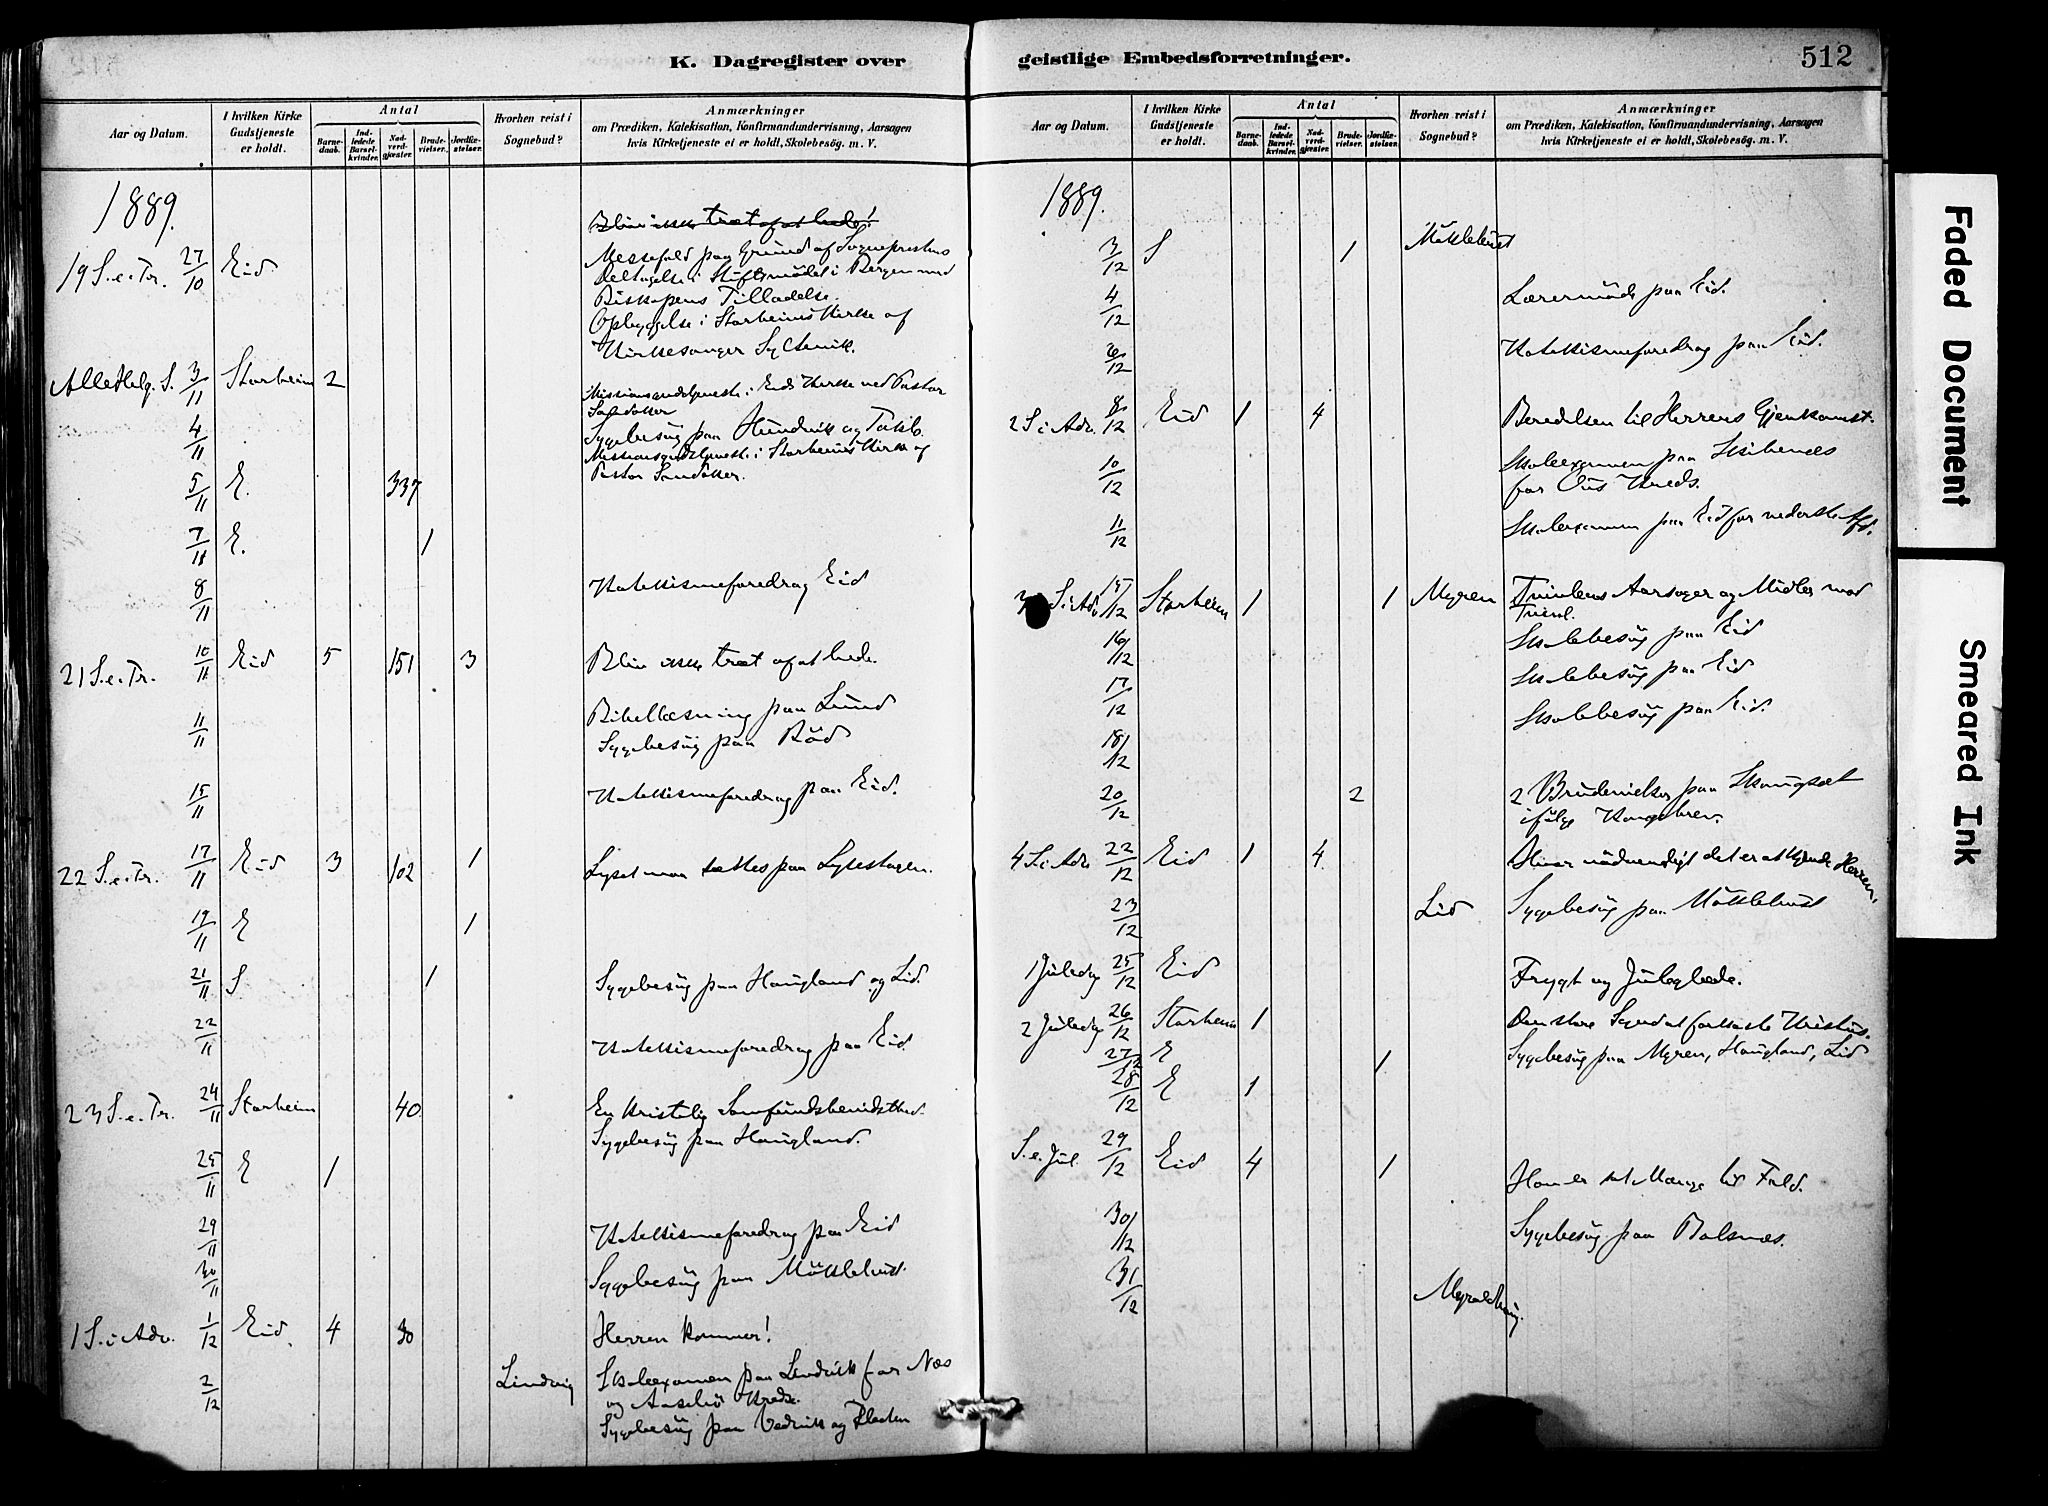 K. Dagregister over geistlige Embedsforretninger.
512
Aar og Datum.
I hvilken Kirke Gudstjeneste er holdt.
Antal
Barne-daab.
Ind-ledede Barsel-kvinder.
Nad-verd-gjæster.
Brude-vielser.
Jordfæ-stelser.
Hvorhen reist i Sognebud?
Anmærkninger
om Prædiken, Katekisation, Konfirmandundervisning, Aarsagen
hvis Kirketjeneste ei er holdt, Skolebesög. m. V.
1889.
Bliv ikke træt af at bede!
19 S. e. Tr. 27/10 Eid Messefald paa Grund af Sogneprestens
Deltagelse i Stiftsmödet i Bergen med
Biskopens Tilladelse.
Opbyggelse i Starheims Kirke af
Kirkesanger
AlleHelg. S. 3/11 Starheim 2 Missionsgudstjeneste i Eids Kirke ved Pastor
4/11 Sygebesög paa Hundvik og
Missionsgudstjeneste i Starheims Kirke af
Pastor
5/11 E. 337
7/11 E. 1
8/11 Katekismeforedrag Eid
21 S. e. Tr. 10/11 Eid 5 151 3 Bliv ikke træt af at bede.
11/11 Bibellæsning paa Lund
Sygebesög paa Böd
15/11 Katekismeforedrag paa Eid.
22 S. e. Tr. 17/11 Eid 3 102 1 Lyset maa sættes paa Lysestagen.
19/11 E 1
21/11 S 1 Sygebesög paa Haugland og Lid.
22/11 Katekismeforedrag paa Eid
23 S. e. Tr. 24/11 Starheim 40 En kristelig Samfundsbevidsthed.
Sygebesög paa Haugland.
25/11 E 1
29/11 Katekismeforedrag paa Eid
30/11 Sygebesög paa Möklebust.
1 S. i Adv. 1/12 Eid. 4 30 Herren kommer!
2/12 Lindvig Skoleexamen paa Lindvik for Næs
og Kreds.
Sygebesög paa og
Aar og Datum.
I hvilken Kirke Gudstjeneste er holdt.
Antal
Barne-daab.
Ind-ledede Barsel-kvinder.
Nad-verd-gjæster.
Brude-vielser.
Jordfæ-stelser.
Hvorhen reist i Sognebud?
Anmærkninger
om Prædiken, Katekisation, Konfirmandundervisning, Aarsagen
hvis Kirketjeneste ei er holdt, Skolebesög. m. V.
1889.
3/12 S 1 Möklebust
4/12 Lærermöde paa Eid.
6/12 Katekismeforedrag paa Eid.
2 S. i Adv. 8/12 Eid 1 4 Beredelsen til Herrens Gjenkomst.
10/12 Skoleexamen paa
for Kreds.
11/12 Skoleexamen paa Eid for nederste Afd.
3 S. i Adv. 15/12 Starheim 1 1 Myren Tvivlens Aarsager og Midler mod
Tvivl.
16/12 Skolebesög paa Eid
17/12 Skolebesög paa Eid
18/12 Skolebesög paa Eid.
20/12 2 2 Brudevielser paa
ifölge Kongebrev.
4 S. i Adv. 22/12 Eid 1 4 Hvor nödvendigt det er at kjende Herren.
23/12 Lid Sygebesög paa Möklebust
1 Juledg 25/12 Eid Frygt og Juleglede.
2 Juledg 26/12 Starheim 1 Den store Synd at forkaste Kristus.
27/12 E 1 Sygebesög paa Myren, Haugland, Lid
28/12 E 1
S. e. Jul 29/12 Eid 4 1 Han er sat Mange til Fald.
30/12 Sygebesög paa
31/12
Faded Document
Smeared Ink